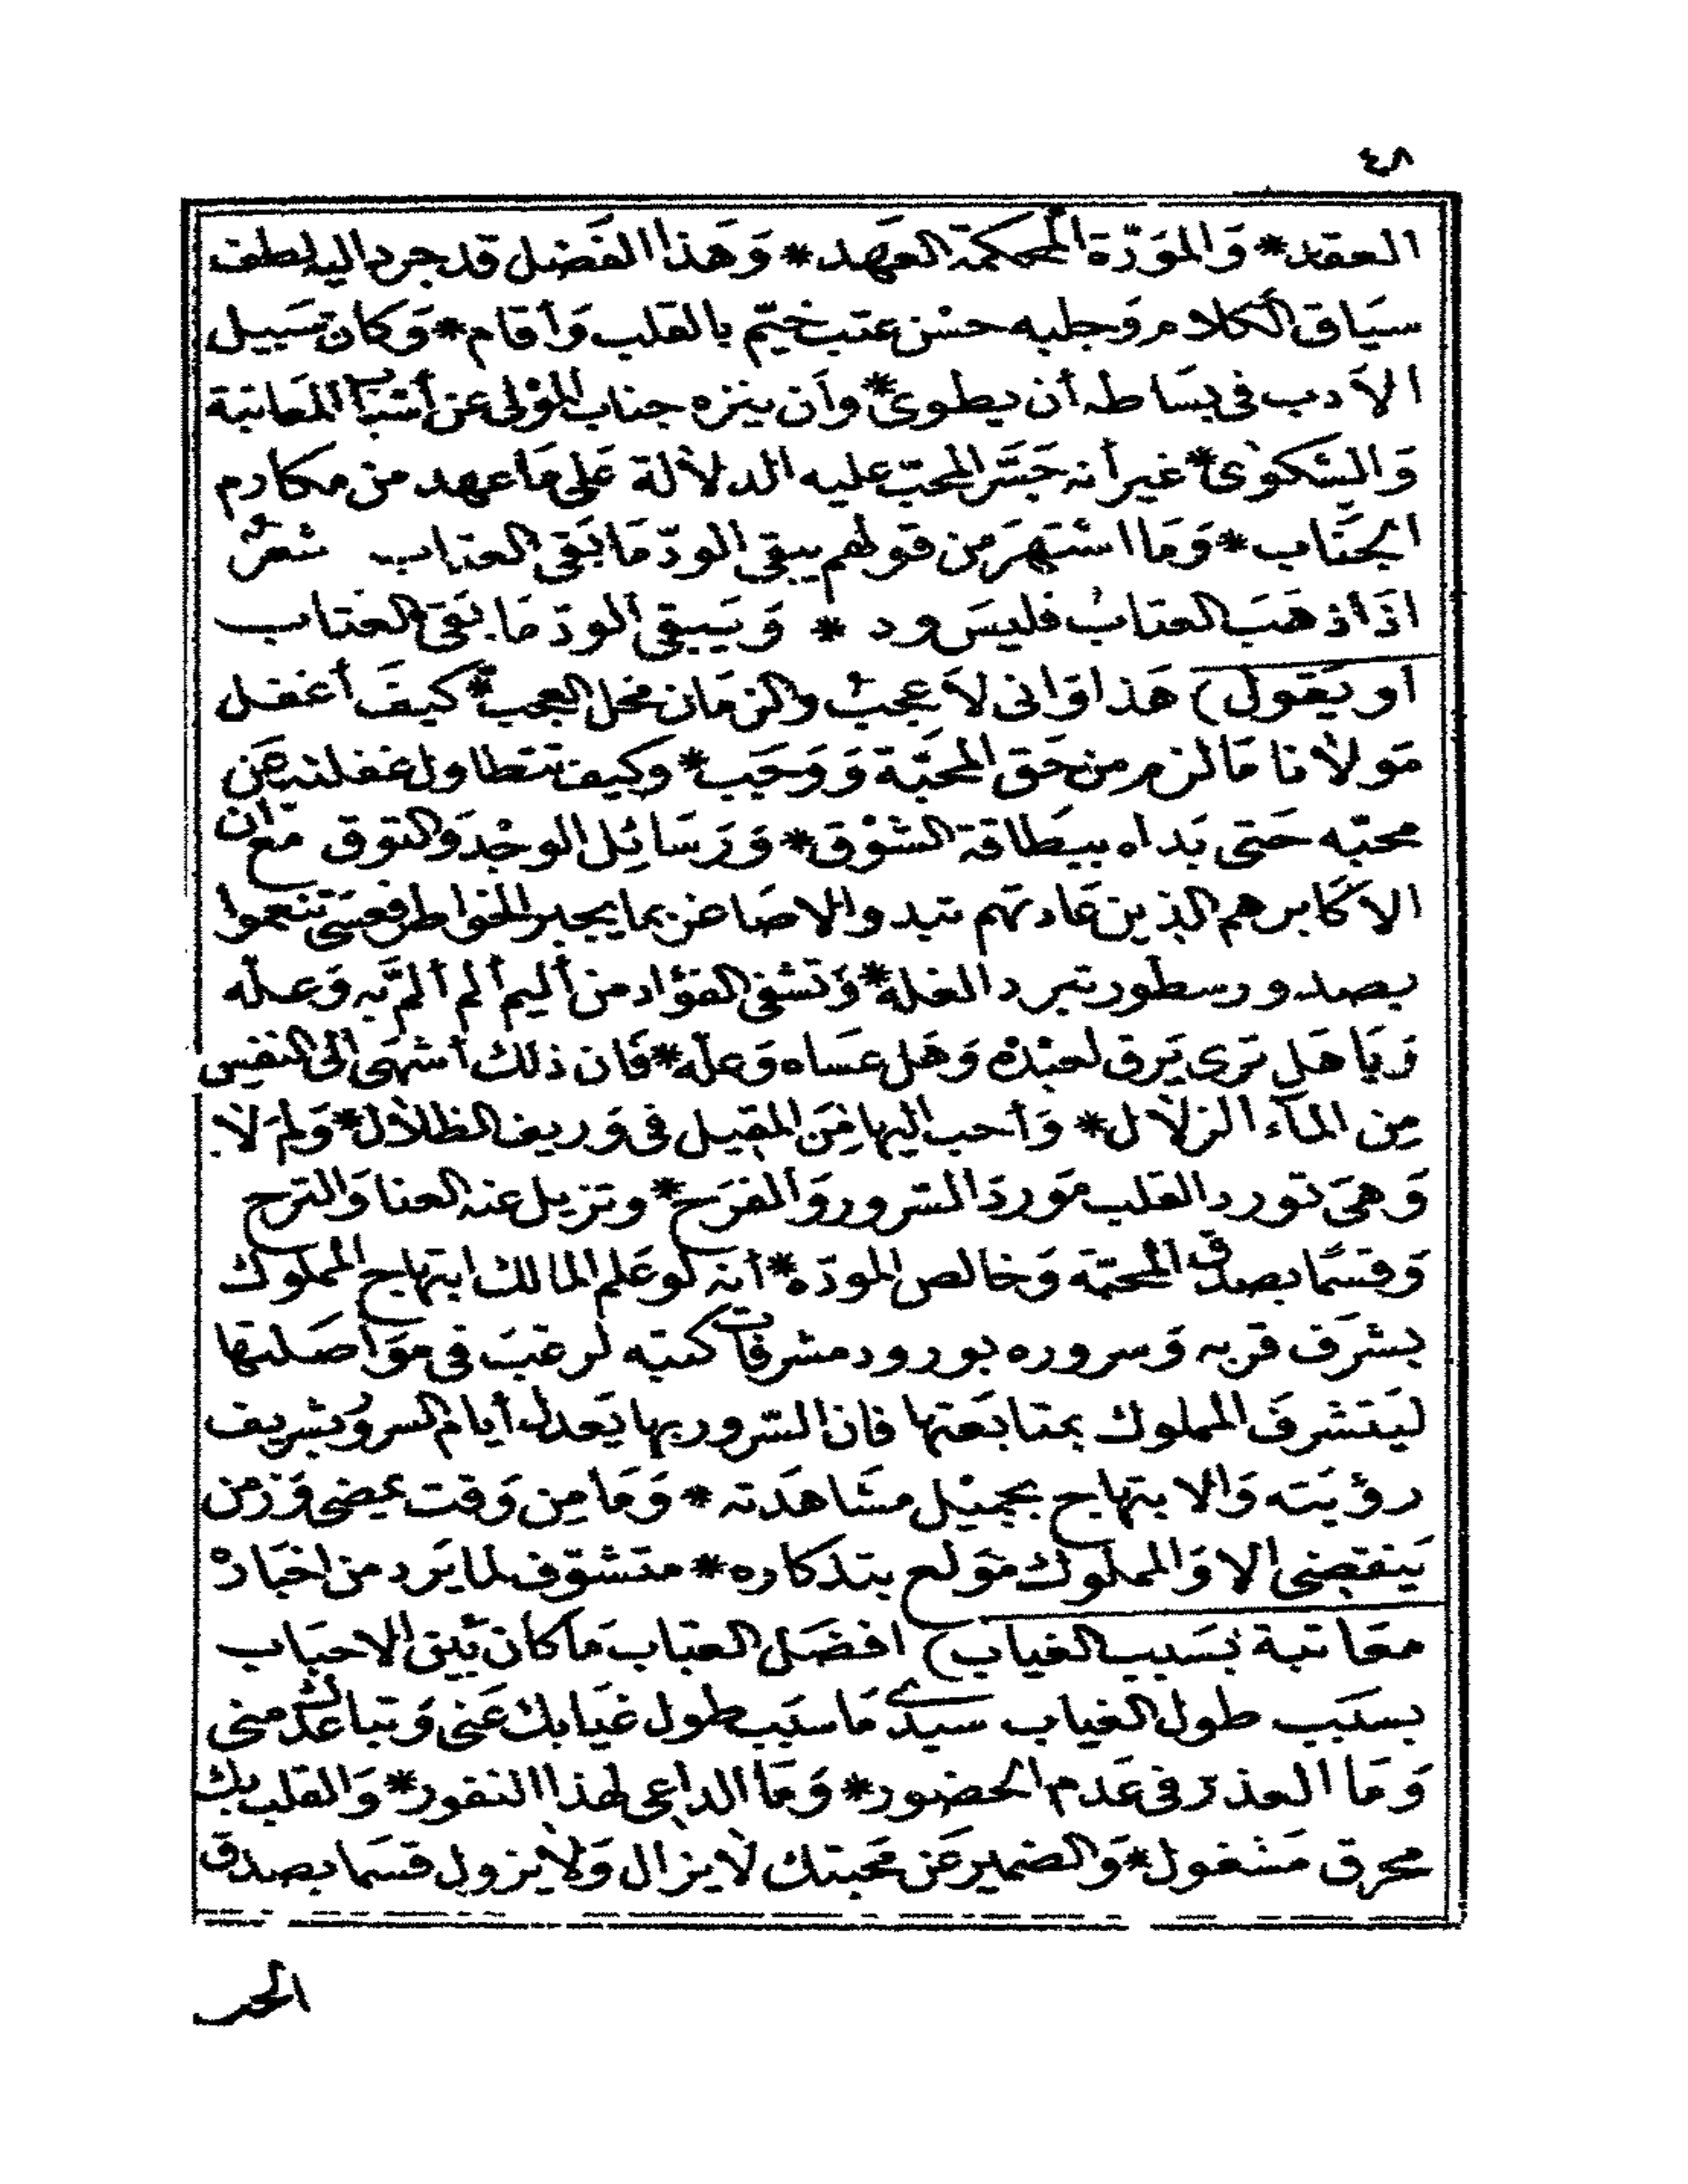 ٤٨
العقد* وَالموَدّة المحكمة العهد* وَهذا الفَضل قد جر داليه لطف
سيَاق الكلام وَجلبه حسْن عتب خيّم بالقلب وَأقام* وَكان سَبيل
الأدب فى بسَاطه أن يطوى* وأن ينزه جناب الموْلى عن أسْبَاب المعَاتبة
وَالشكوٰى* غير أنه جَسَّر المحبّ عليه الدلالة عَلى مَا عهد من مكارم
الجنَاب* وَمَا اشتهَر من قولهم يبقى الودّ مَا بَقى العتاب شعرٌ
اذَا ذهَبَ العتابُ فليسَ ود * وَيَبقى الودّ مَا بَقى العتاب
أو يَقول) هَذا وَانى لاَ عجبُ والزمَان محَل العجب* كيفَ أغفل
مَولانا مَا لزم من حَق المحَبّة وَوَجَب* وكيف تتطاول غفلته عَن
محبّه حَتى بَداه ببطَاقة الشوْق* وَرَسَائل الوجْد وَالتوق مع ان
الأكَابر هم الذين عَادتهم تبدو الاصَاغر بما يجبر الخواطر فعسَى تنعموا
بصدور سطور تبرد الغلة* وَتشفى الفؤاد من أليم ألم ألمّ به وَعله
وَيَا هَل تَرى يَرق لعبْدهْ وَهَل عسَاه وَعلّه* فَان ذلك أشهَى الى النفيس
مِن المَاء الزلال* وَأحب اليهَا مَن المقيل فى وَريف الظلال* وَلم لا
وَهىَ تورد القلب مَوردَ السرور وَالفرَح* وتزيل عنه العنا وَالترح
وَقسمًا بصدق المحَبّة وَخالص المودّه* أنه لو عَلم المالك ابتهاج المملوك
بشرَف قربه وَسروره بورود مشرفات كتبه لرغبَ فى موَاصَلتها
ليَتشرفَ المملوك بمتابَعتها فان السرور بها يَعدل أيام السرور بشريف
رؤيَته وَالابتهاج بجميْل مشَاهدَته * وَمَا مِن وَقت يمضى وَزمن
يَنقضى الا وَالمملوك مَولع بتذكاره* متشوّف لما يَرد من اخبَارهْ
معَاتبة بسَبب الغياب) افضَل العتاب مَا كان بَين الاحبَاب
بسبَب طول الغياب سيدى مَا سبَب طول غيَابك عَنى وَتباعدك منى
وَمَا العذر فى عَدم الحضور* وَمَا الداعى لهذا النفور* وَالقلب بك
محرق مَشغول* وَالضمير عَن محَبتك لا يزال وَلا يزول قسمَا بصدق
الحب